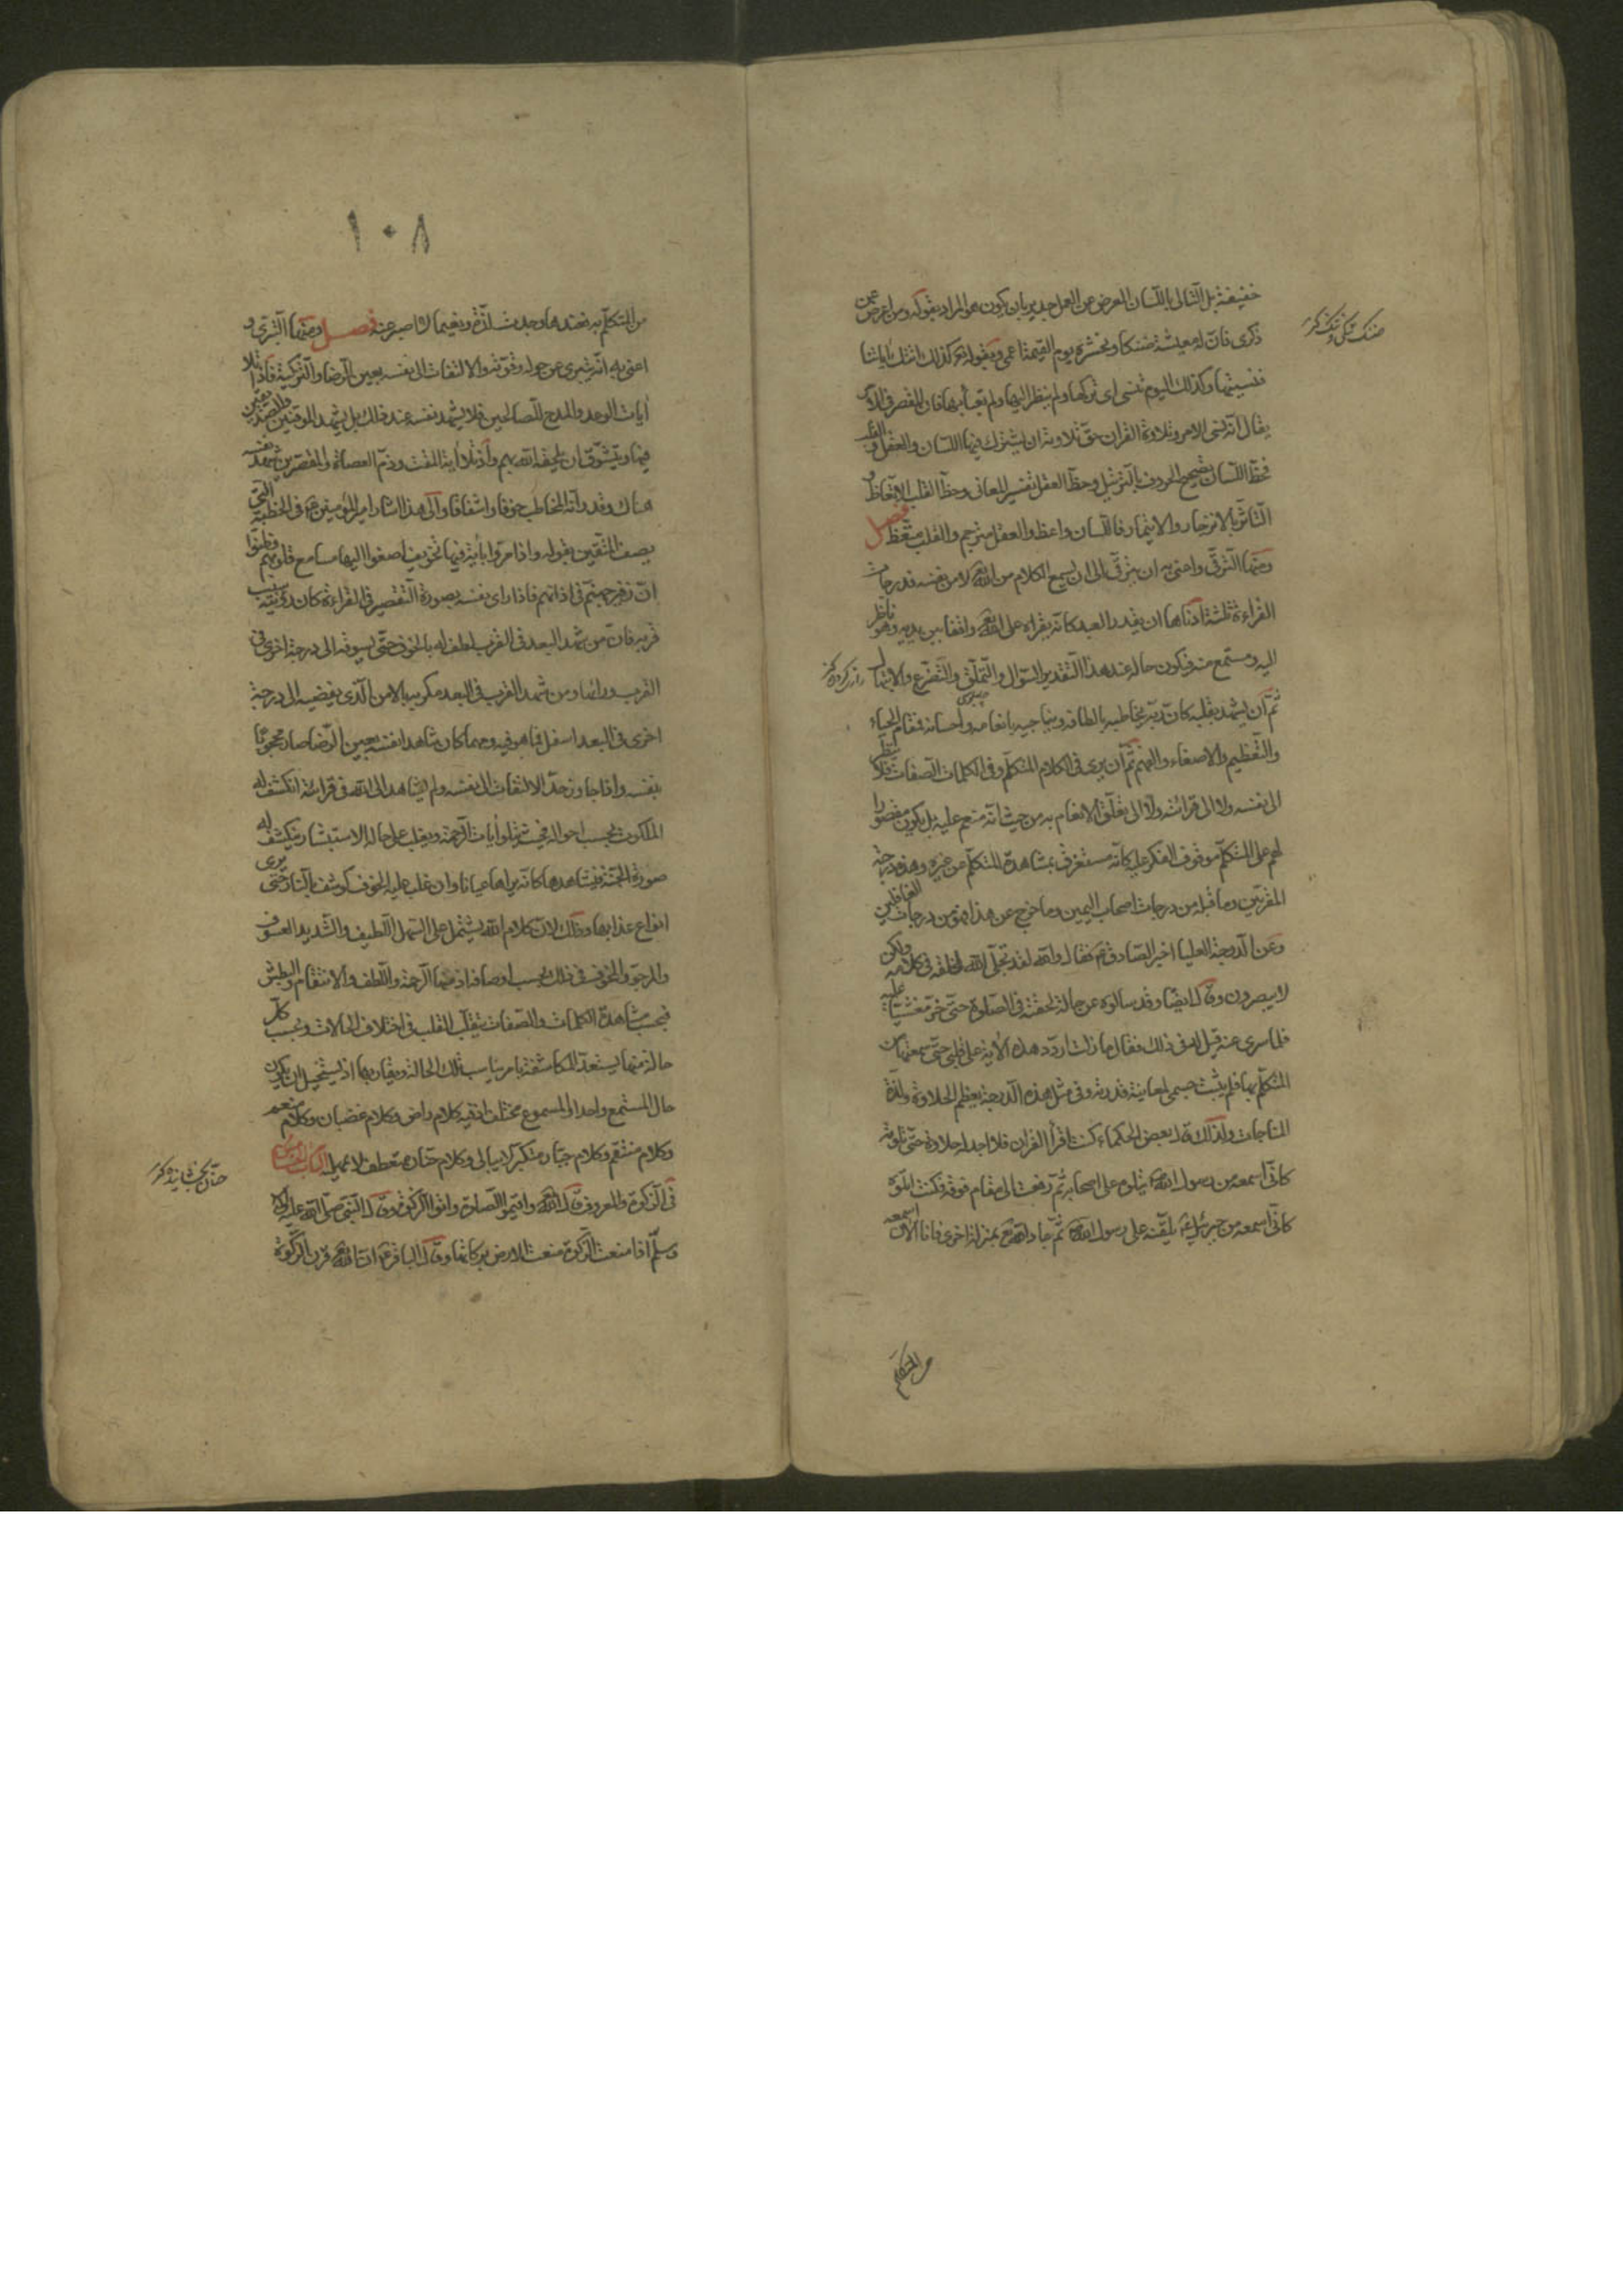 خفيفة بل التالي باللسان المعرض عن العمل جدير بان يكون هو المراد بقوله ومن اعرض عن
ذكرى فان له معيشة ضنكا ونحشره يوم القيمة اعمى وبقوله تع كذلك اتتك اياتنا
فنسيتها وكذلك اليوم تنسى اى تركها ولم ينظر اليها ولم يعبأ بها فان المقصر فى الامر
يقال انه نسى الامر وتلاوة القران حق تلاوته ان يشترك فيها اللسان والعقل والقلب
فحظ اللسان تصحيح الحروف بالترتيل وحظ العقل تفسير المعانى وحظ القلب الاتعاظ و
التاثر بالانزجار والايتمار فاللسان واعظ والعقل مترجم والقلب متعظ فصل
ومنها الترقى واعنى به ان يترقى الى ان يسمع الكلام من الله تع لا من نفسه فدرجات
القراءة ثلثة ادناها ان يقدر العبد كانه يقراه على الله تع واقفا بين يديه وهو ناظر
اليه ومستمع منه فيكون حاله عند هذا التقدير السؤال والتملق والتضرع والابتهال
ثم ان يشهد بقلبه كان ربه يخاطبه بالطافه ويناجيه بانعامه واحسانه فمقام الحياء
والتعظيم والاصغاء والفهم ثم ان يرى فى الكلام المتكلم وفى الكلمات الصفات فلا ينظر
الى نفسه ولا الى قرائته ولا الى تعلق الانعام به من حيث انه منعم عليه بل يكون مقصورا
لهم على المتكلم موقوف الفكر عليه كانه مستغرق بمشاهدة المتكلم عن غيره وهذه درجة
المقربين وما قبله من درجات اصحاب اليمين وما خرج عن هذا فهو من درجات الغافلين
وعن الدرجة العليا اخبر الصادق ع فقال والله لقد تجلى الله لخلقه فى كلامه ولكن
لا يبصرون وقال ايضا وقد سالوه عن حالة لحقته فى الصلوة حتى خر مغشيا عليه
فلما سرى عنه قيل له فى ذلك فقال ما زلت اردد هذه الاية على قلبى حتى سمعتها من
المتكلم بها فلم يثبت جسمى لمعاينة قدرته وفى مثل هذه الدرجة يعظم الحلاوة ولذة
المناجات ولذلك قال بعض الحكماء كنت اقرأ القران فلا اجد له حلاوة حتى تلوته
كانى اسمعه من رسول الله ص يتلوه على اصحابه ثم رفعت الى مقام فوقه فكنت اتلوه
كانى اسمعه من جبرئيل ع يلقنه على رسول الله ص ثم جاء الله تع بمنزلة اخرى فانا الان اسمعه
من المتكلم
١٠٨
من المتكلم به فعندها وجدت لذة ونعيما لا اصبر عنه فصل ومنها التبرى و
اعنى به انه تبرى عن حوله وقوته والالتفات الى نفسه بعين الرضا والتزكية فاذا تلا
ايات الوعد والمدح للصالحين فلا يشهد نفسه عند ذلك بل يشهد الموقنين والصديقين
فيها ويتشوق ان يلحقه الله بهم واذا تلا اية المقت وذم العصاة والمقصرين شهد نفسه
هناك وقدر انه المخاطب خوفا واشفاقا والى هذا اشار امير المؤمنين ع فى الخطبة التى
يصف المتقين بقوله واذا مروا باية فيها تخويف اصغوا اليها مسامع قلوبهم وظنوا
ان زفير جهنم فى اذانهم فاذا راى نفسه بصورة التقصير فى القراءة كان رؤيته سبب
قربه فان من شهد البعد فى القرب لطف له بالخوف حتى يسوقه الى درجة اخرى فى
القرب وراءها ومن شهد القرب فى البعد مكر به بالامن الذى يفضيه الى درجة
اخرى فى البعد اسفل مما هو فيه ومهما كان مشاهدا نفسه بعين الرضا صار محجوبا
بنفسه واذا جاوز حد الالتفات الى نفسه ولم يشاهد الا الله فى قرائته انكشف له
الملكوت بحسب احواله فحيث يتلو ايات الرحمة ويغلب على حاله الاستبشار ينكشف له
صورة الجنة فيشاهدها كانه يراها عيانا وان غلب عليه الخوف كوشف بالنار حتى يرى
انواع عذابها وذلك لان كلام الله يشتمل على السهل اللطيف والشديد العسوف
والمرجو والمخوف وذلك بحسب اوصافه اذ منها الرحمة واللطف والانتقام والبطش
فبحسب مشاهدة الكلمات والصفات يتقلب القلب فى اختلاف الحالات وبحسب كل
حالة منها يستعد للمكاشفة بامر يناسب تلك الحالة ويقاربها اذ يستحيل ان يكون
حال المستمع واحدا والمسموع مختلف اذ فيه كلام راض وكلام غضبان وكلام منعم
وكلام منتقم وكلام جبار متكبر لا يبالى وكلام حنان متعطف لا يهمل الباب الخامس
فى الزكوة والمعروف قال الله تع واقيموا الصلوة واتوا الزكوة وقال النبى صلى الله عليه واله
وسلم اذا منعت الزكوة منعت الارض بركاتها وقال الباقر ع ان الله تع قرن الزكوة